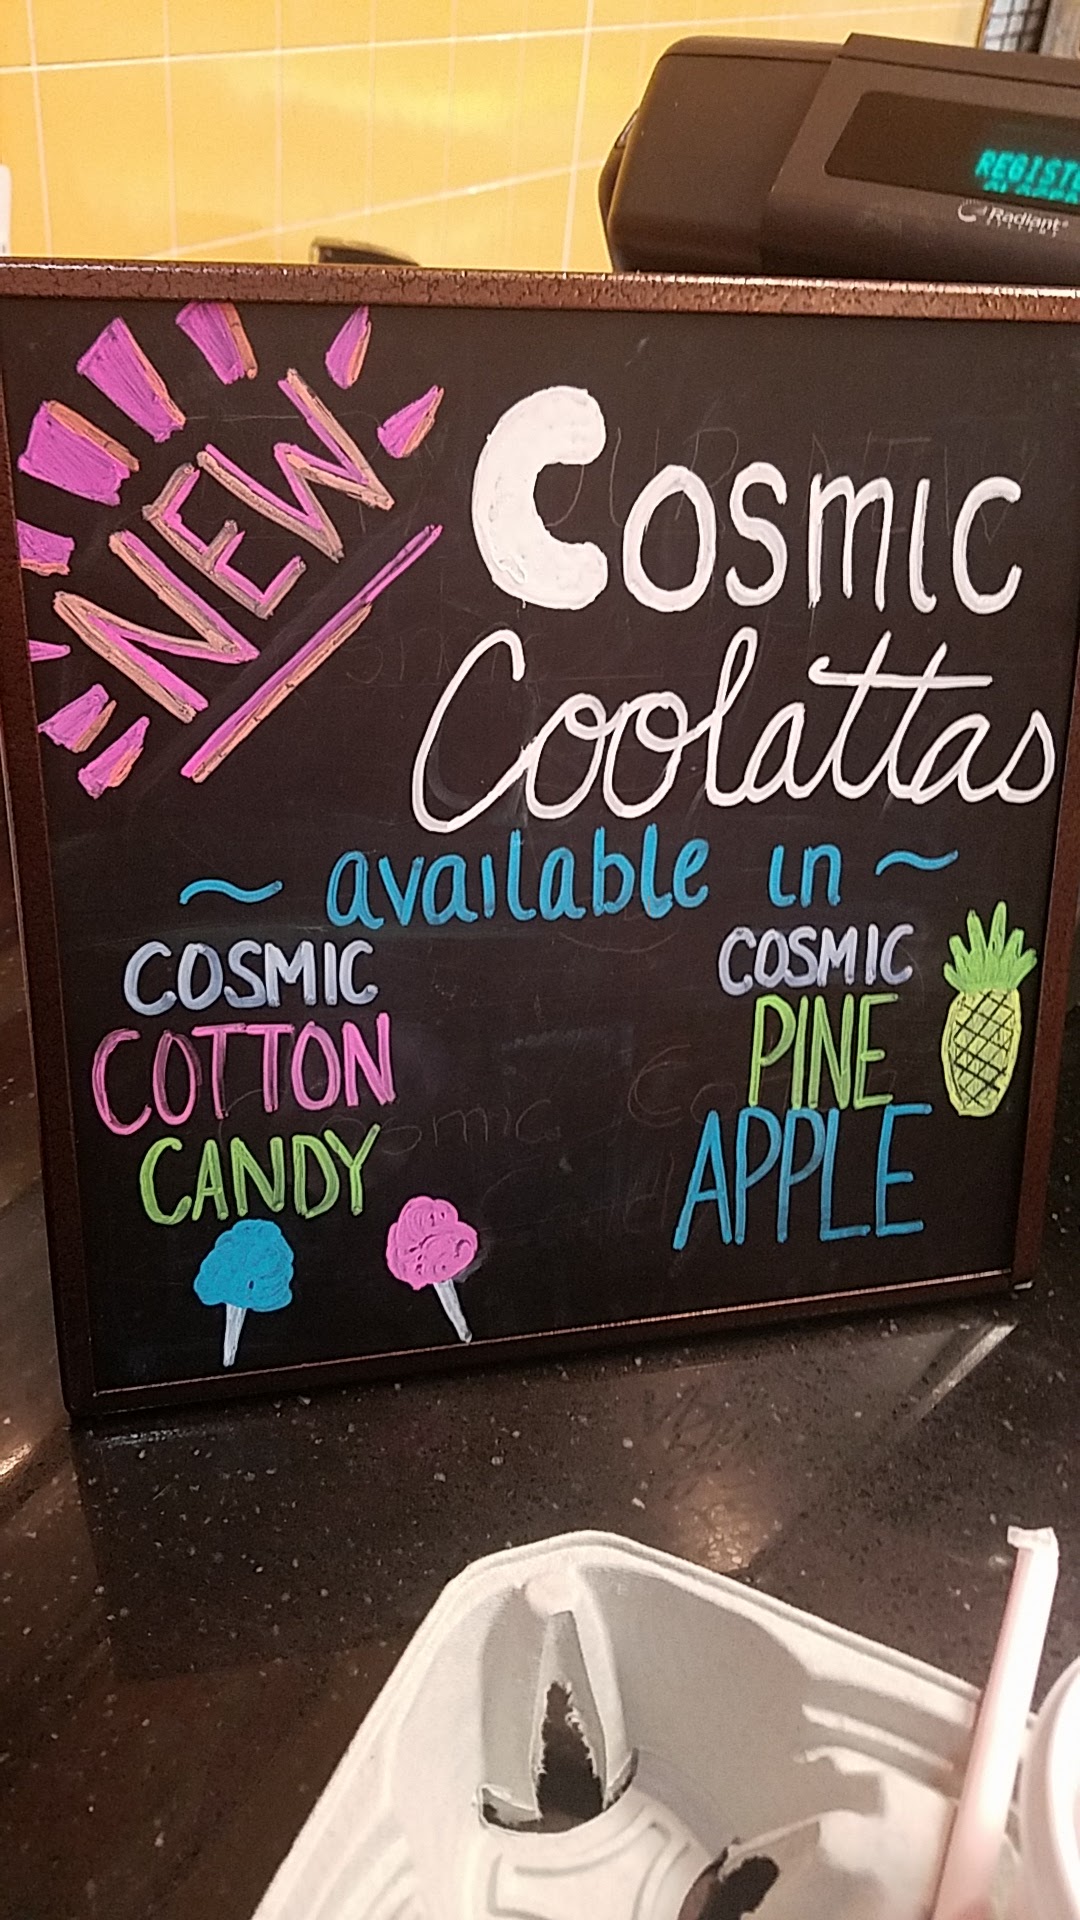 Radiant
NEW
COSMIC
Coolattas
~ available in ~
COSMIC
COTTON
CANDY
COSMIC
PINE
APPLE